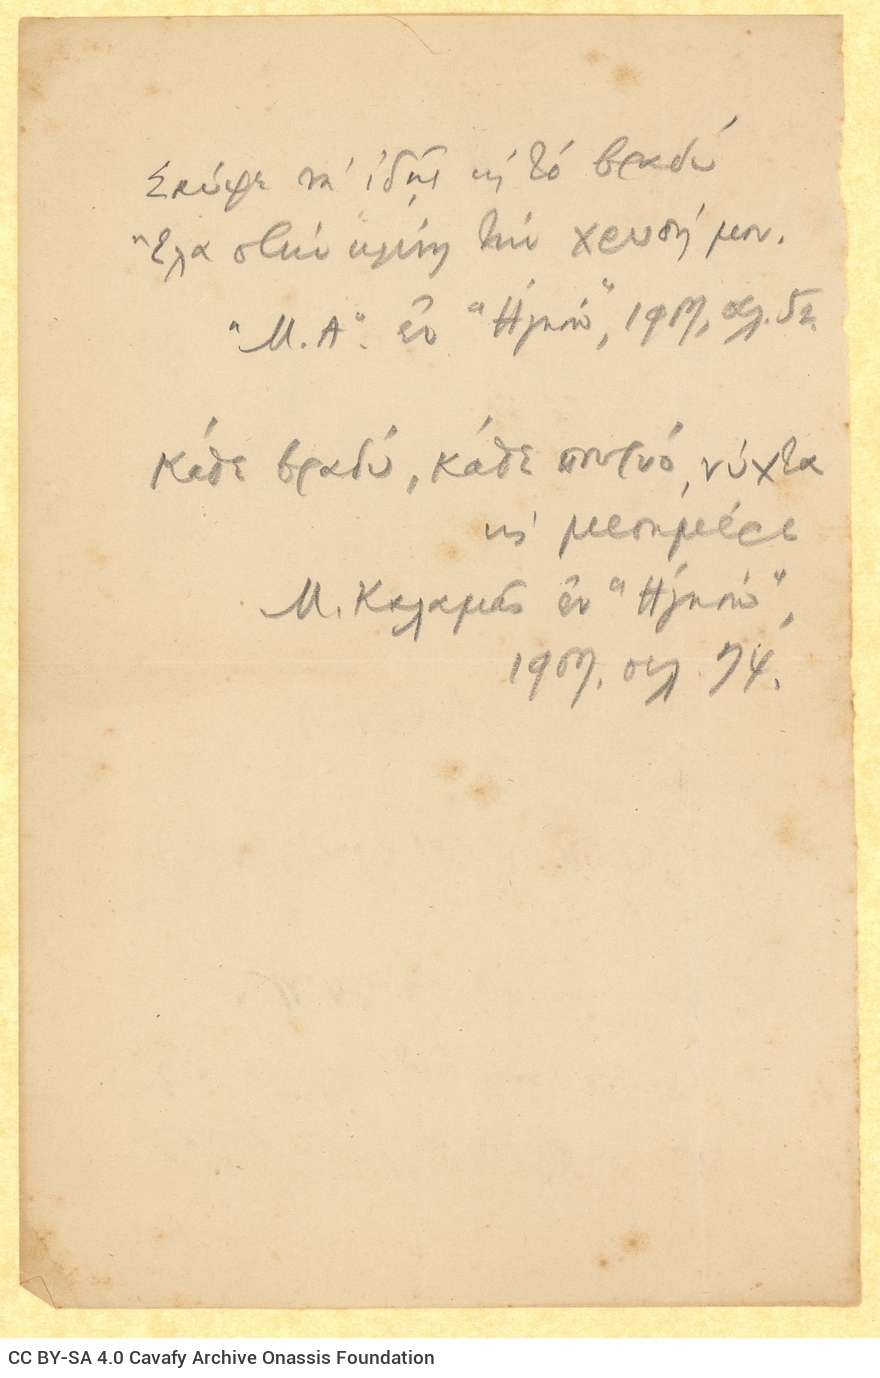 Σκύψε να' ἰδῇς κι τό βραδύ
Ἔλα στην κλίνη την χρυσή μου.
"Μ. Α". ἐν "Ἡγησώ", 1907, σελ. 52.
Κάθε βραδύ, κάθε πουρνό, νύχτα
κι μεσημέρι
Μ. Καλαμᾶς ἐν "Ἡγησώ",
1907. σελ. 74.
CC BY-SA 4.0 Cavafy Archive Onassis Foundation